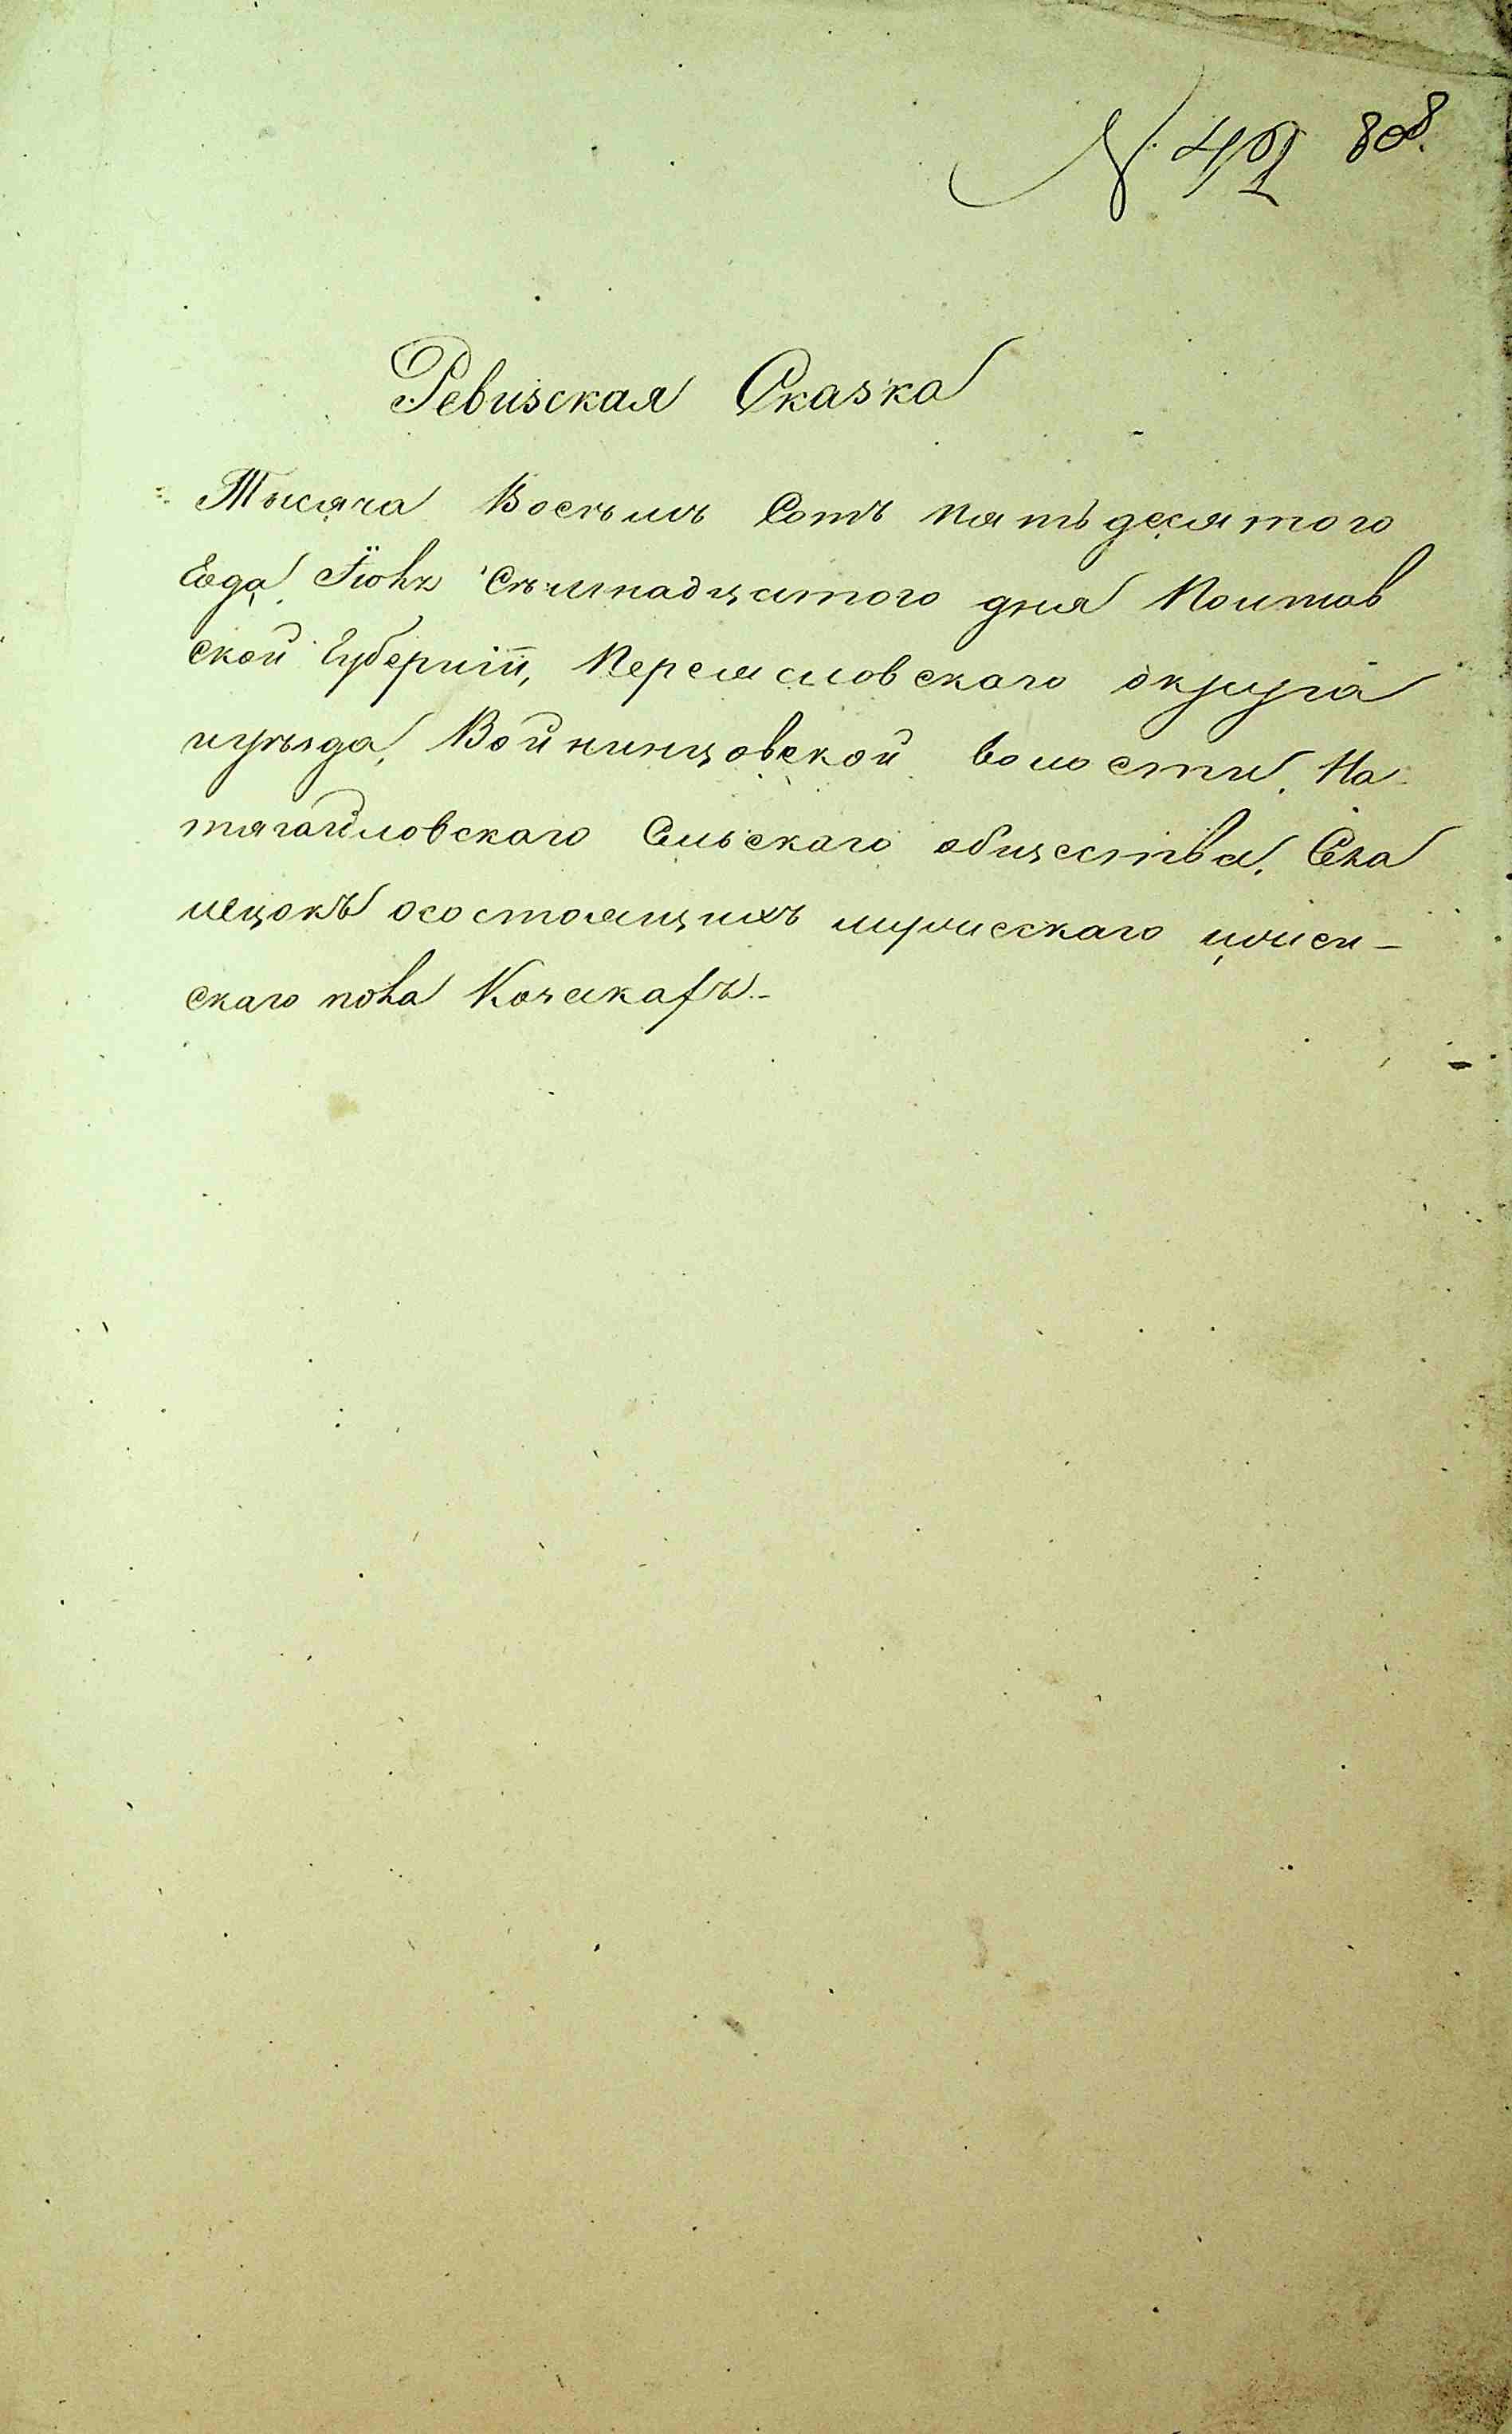 N. 492 808.
Ревизская Сказка
Тысяча Восѣмъ Сотъ пятьдесятого
Года, Іюня Сѣмнадцатого дня Полтав
ской Губерніи, Переясловскаго округа
иуѣзда, Войнинцовской волости. На
тягайловскаго Сельскаго общества.
осостоящихъ мужескаго иженскаго
скаго пола Козакахъ.-